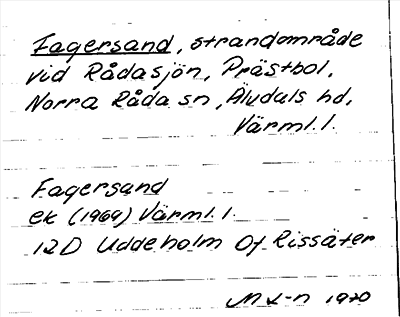 Fagersand, strandområde
vid Rådasjön, Prästbol,
Norra Råda sn, Älvdals hd,
Värml. l.
Fagersand
ek (1969) Värml. l.
12D Uddeholm Of Rissäter
1970